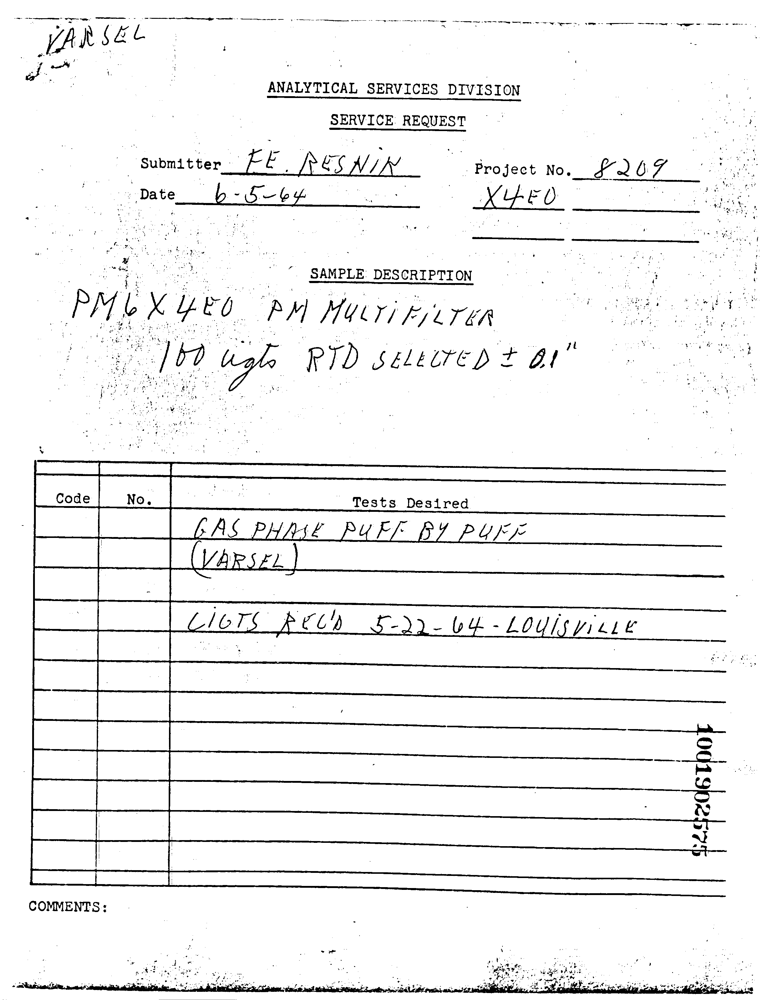 VARSEL
ANALYTICAL SERVICES DIVISION
SERVICE REQUEST
Submitter FE. RESNIK Project No. 8209
Date 6-5-64 X4EO
SAMPLE DESCRIPTION
PM6X4EO PM MULTIFILTER
100 cigts RTD SELECTED ± 0.1"
Code No. Tests Desired
GAS PHASE PUFF BY PUFF
(VARSEL)
CIGTS REC'D 5-22-64 - LOUISVILLE
1001902575
COMMENTS: